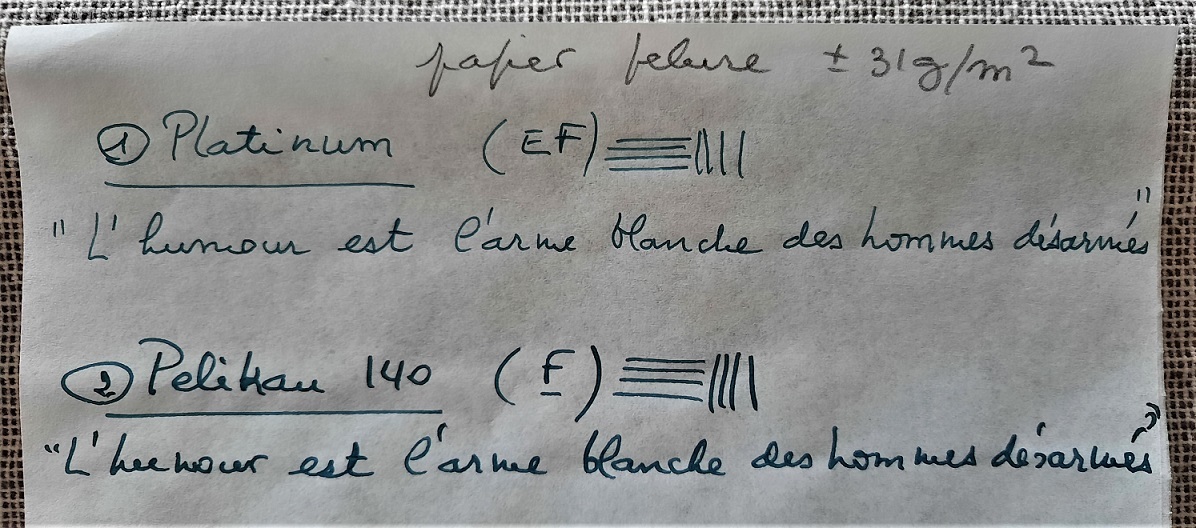 papier pelure ± 31g/m²
① Platinum (EF)
"L'humour est l'arme blanche des hommes désarmés"
② Pelikan 140 (F)
"L'humour est l'arme blanche des hommes désarmés"